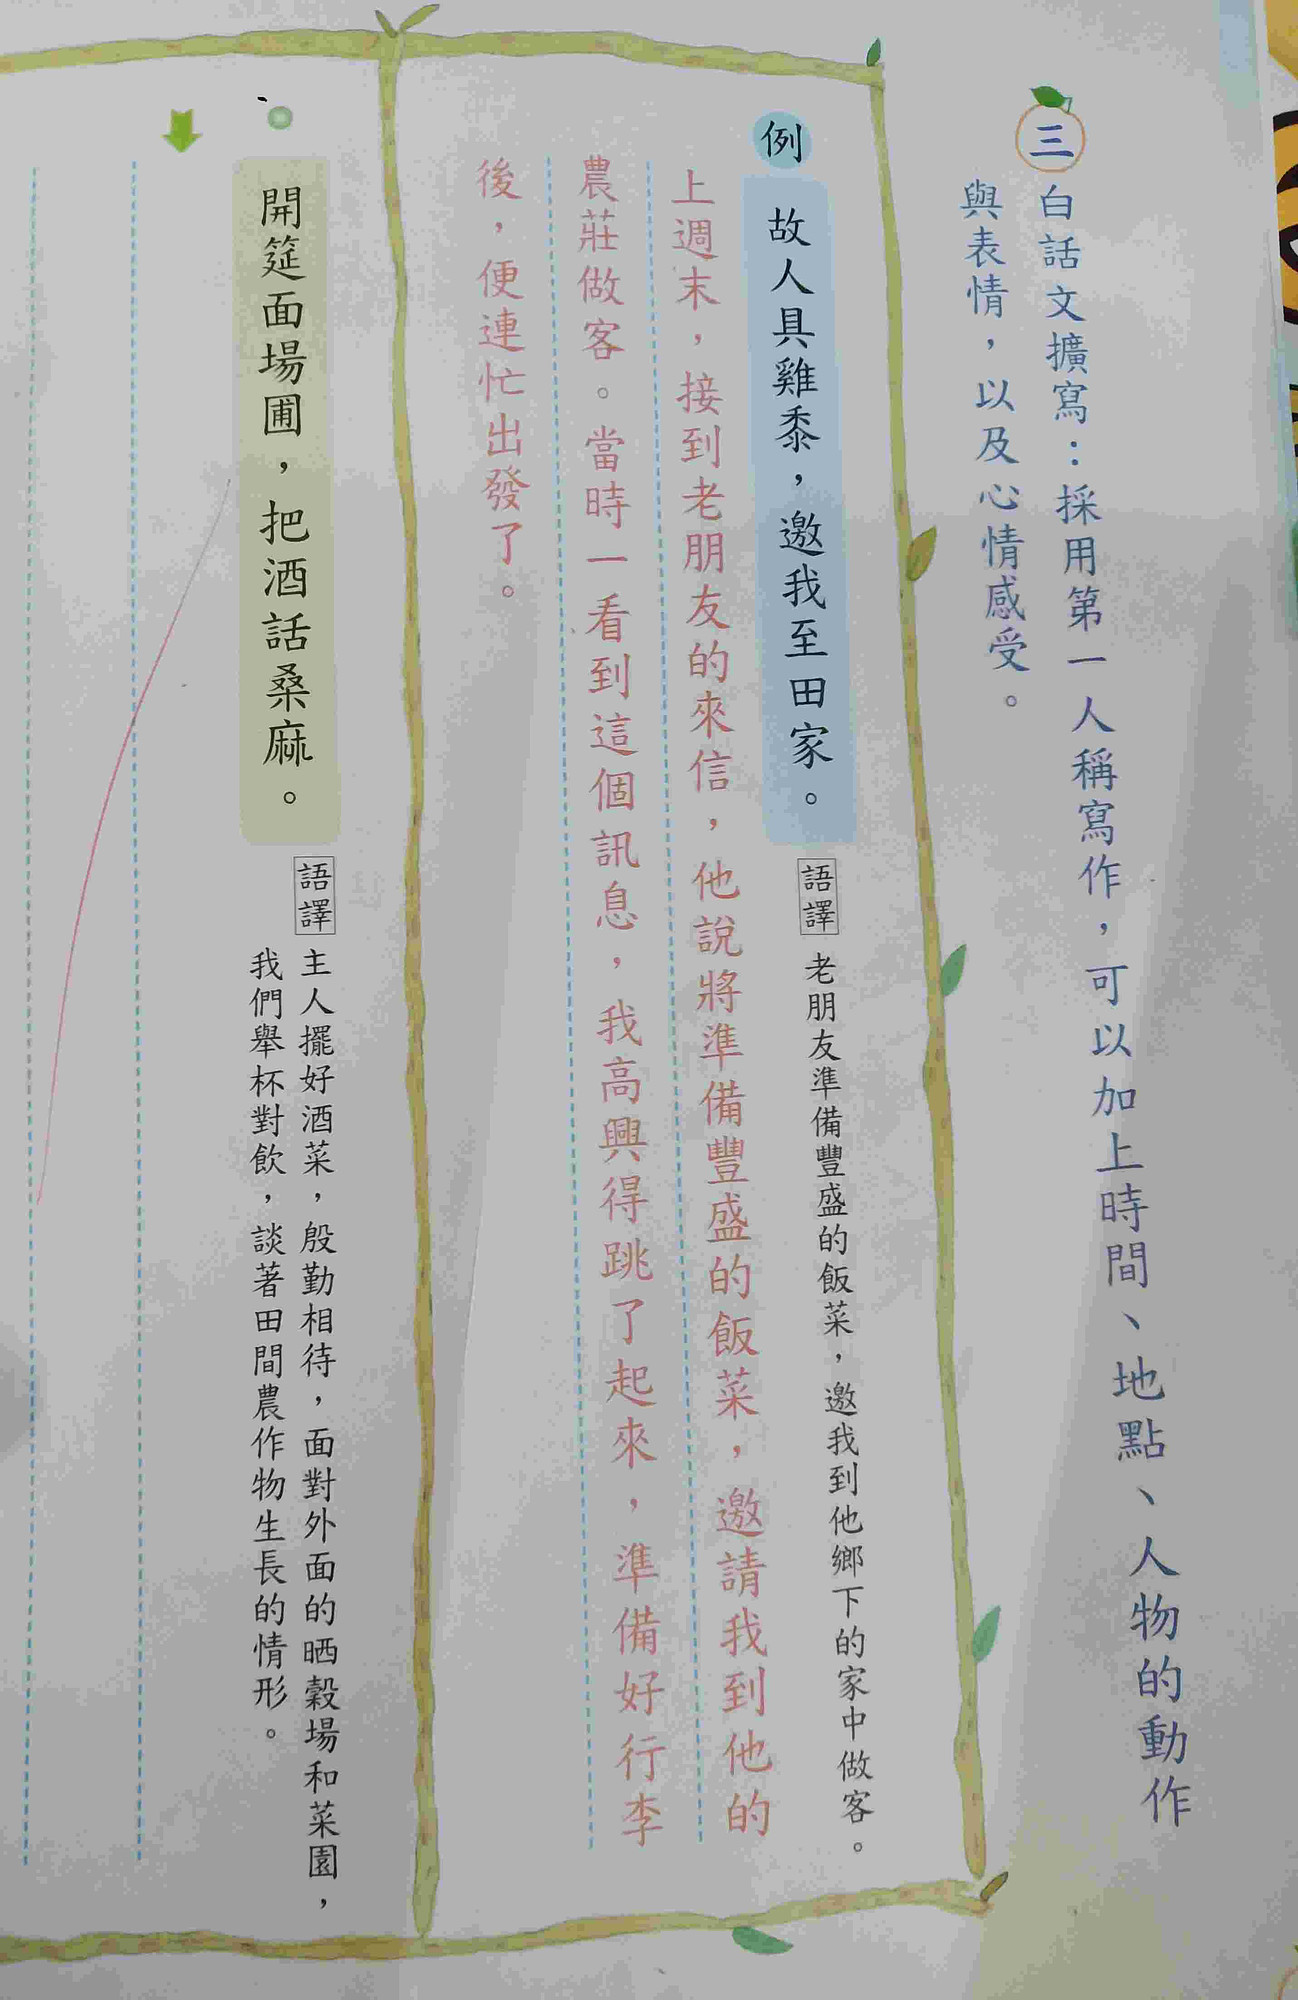 三 白話文擴寫：採用第一人稱寫作，可以加上時間、地點、人物的動作
與表情，以及心情感受。
例 故人具雞黍，邀我至田家。
語譯 老朋友準備豐盛的飯菜，邀我到他鄉下的家中做客。
上週末，接到老朋友的來信，他說將準備豐盛的飯菜，邀請我到他的
農莊做客。當時一看到這個訊息，我高興得跳了起來，準備好行李
後，便連忙出發了。
開筵面場圃，把酒話桑麻。
語譯 主人擺好酒菜，殷勤相待，面對外面的晒穀場和菜園，
我們舉杯對飲，談著田間農作物生長的情形。